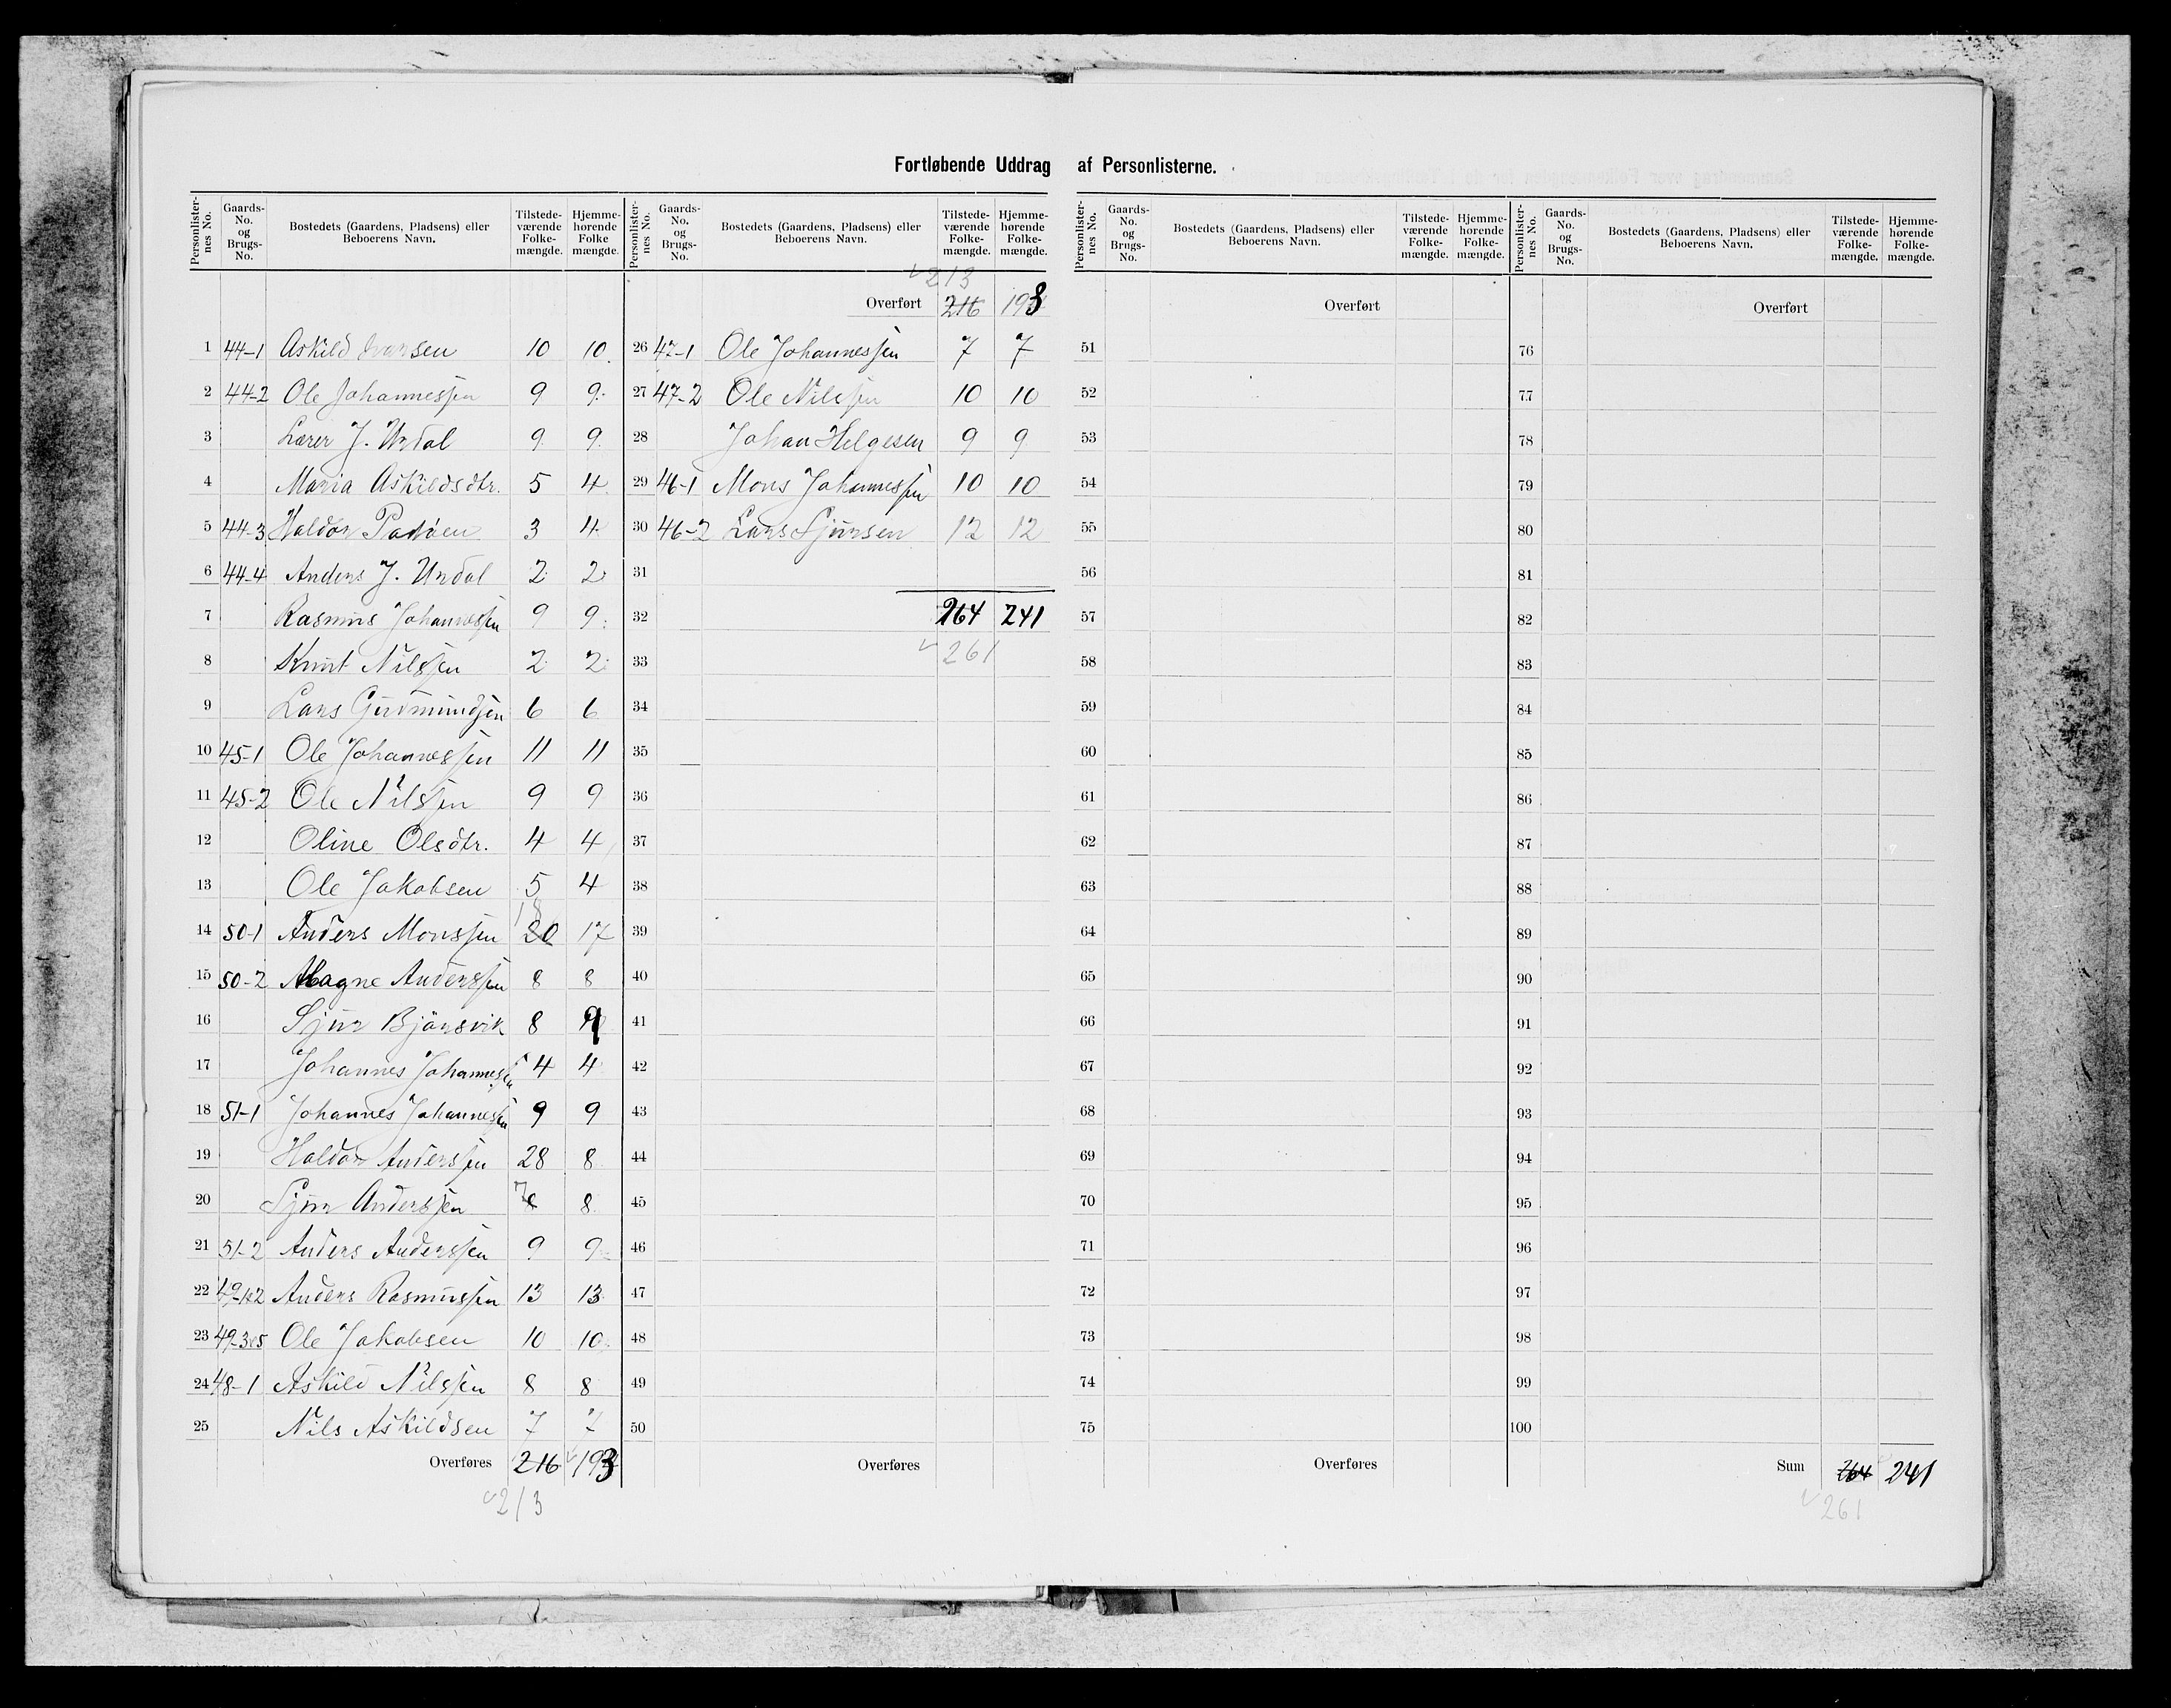 Fortløbende Uddrag af Personlisterne.
Personlisternes No. Gaards-No. og Brugs-No. Bostedets (Gaardens, Pladsens) eller Beboerens Navn. Tilstedeværende Folkemængde. Hjemmehørende Folkemængde.
213
Overført 216 193
1 44-1 Askild Ivarsen 10 10
2 44-2 Ole Johannessen 9 9
3 Lærer J. Urdal 9 9
4 Maria Askildsdtr. 5 4
5 44-3 Haldor 3 4
6 44-4 Anders J. Urdal 2 2
7 Rasmus Johannessen 9 9
8 Knut Nilssen 2 2
9 Lars Gudmundsen 6 6
10 45-1 Ole Johannessen 11 11
11 45-2 Ole Nilssen 9 9
12 Oline Olsdtr. 4 4
13 Ole Jakobsen 5 4
18
14 50-1 Anders Monssen 20 17
15 50-2 Magne Anderssen 8 8
16 Sjur Bjørsvik 8 9
17 Johannes Johannessen 4 4
18 51-1 Johannes Johannessen 9 9
19 Haldor Anderssen 28 8
20 Sjur Anderssen 7 8 8
21 51-2 Anders Anderssen 9 9
22 49-1&2 Anders Rasmussen 13 13
23 49-3&5 Ole Jakobsen 10 10
24 48-1 Askild Nilssen 8 8
25 Nils Askildsen 7 7
Overføres 216 193
213
26 47-1 Ole Johannessen 7 7
27 47-2 Ole Nilssen 10 10
28 Johan Helgesen 9 9
29 46-1 Mons Johannessen 10 10
30 46-2 Lars Sjursen 12 12
31
32 264 241
33 261
34
35
36
37
38
39
40
41
42
43
44
45
46
47
48
49
50
Overføres
Personlisternes No. Gaards-No. og Brugs-No. Bostedets (Gaardens, Pladsens) eller Beboerens Navn. Tilstedeværende Folkemængde. Hjemmehørende Folkemængde.
Overført
51
52
53
54
55
56
57
58
59
60
61
62
63
64
65
66
67
68
69
70
71
72
73
74
75
Overføres
Overført
76
77
78
79
80
81
82
83
84
85
86
87
88
89
90
91
92
93
94
95
96
97
98
99
100
Sum 264 241
261